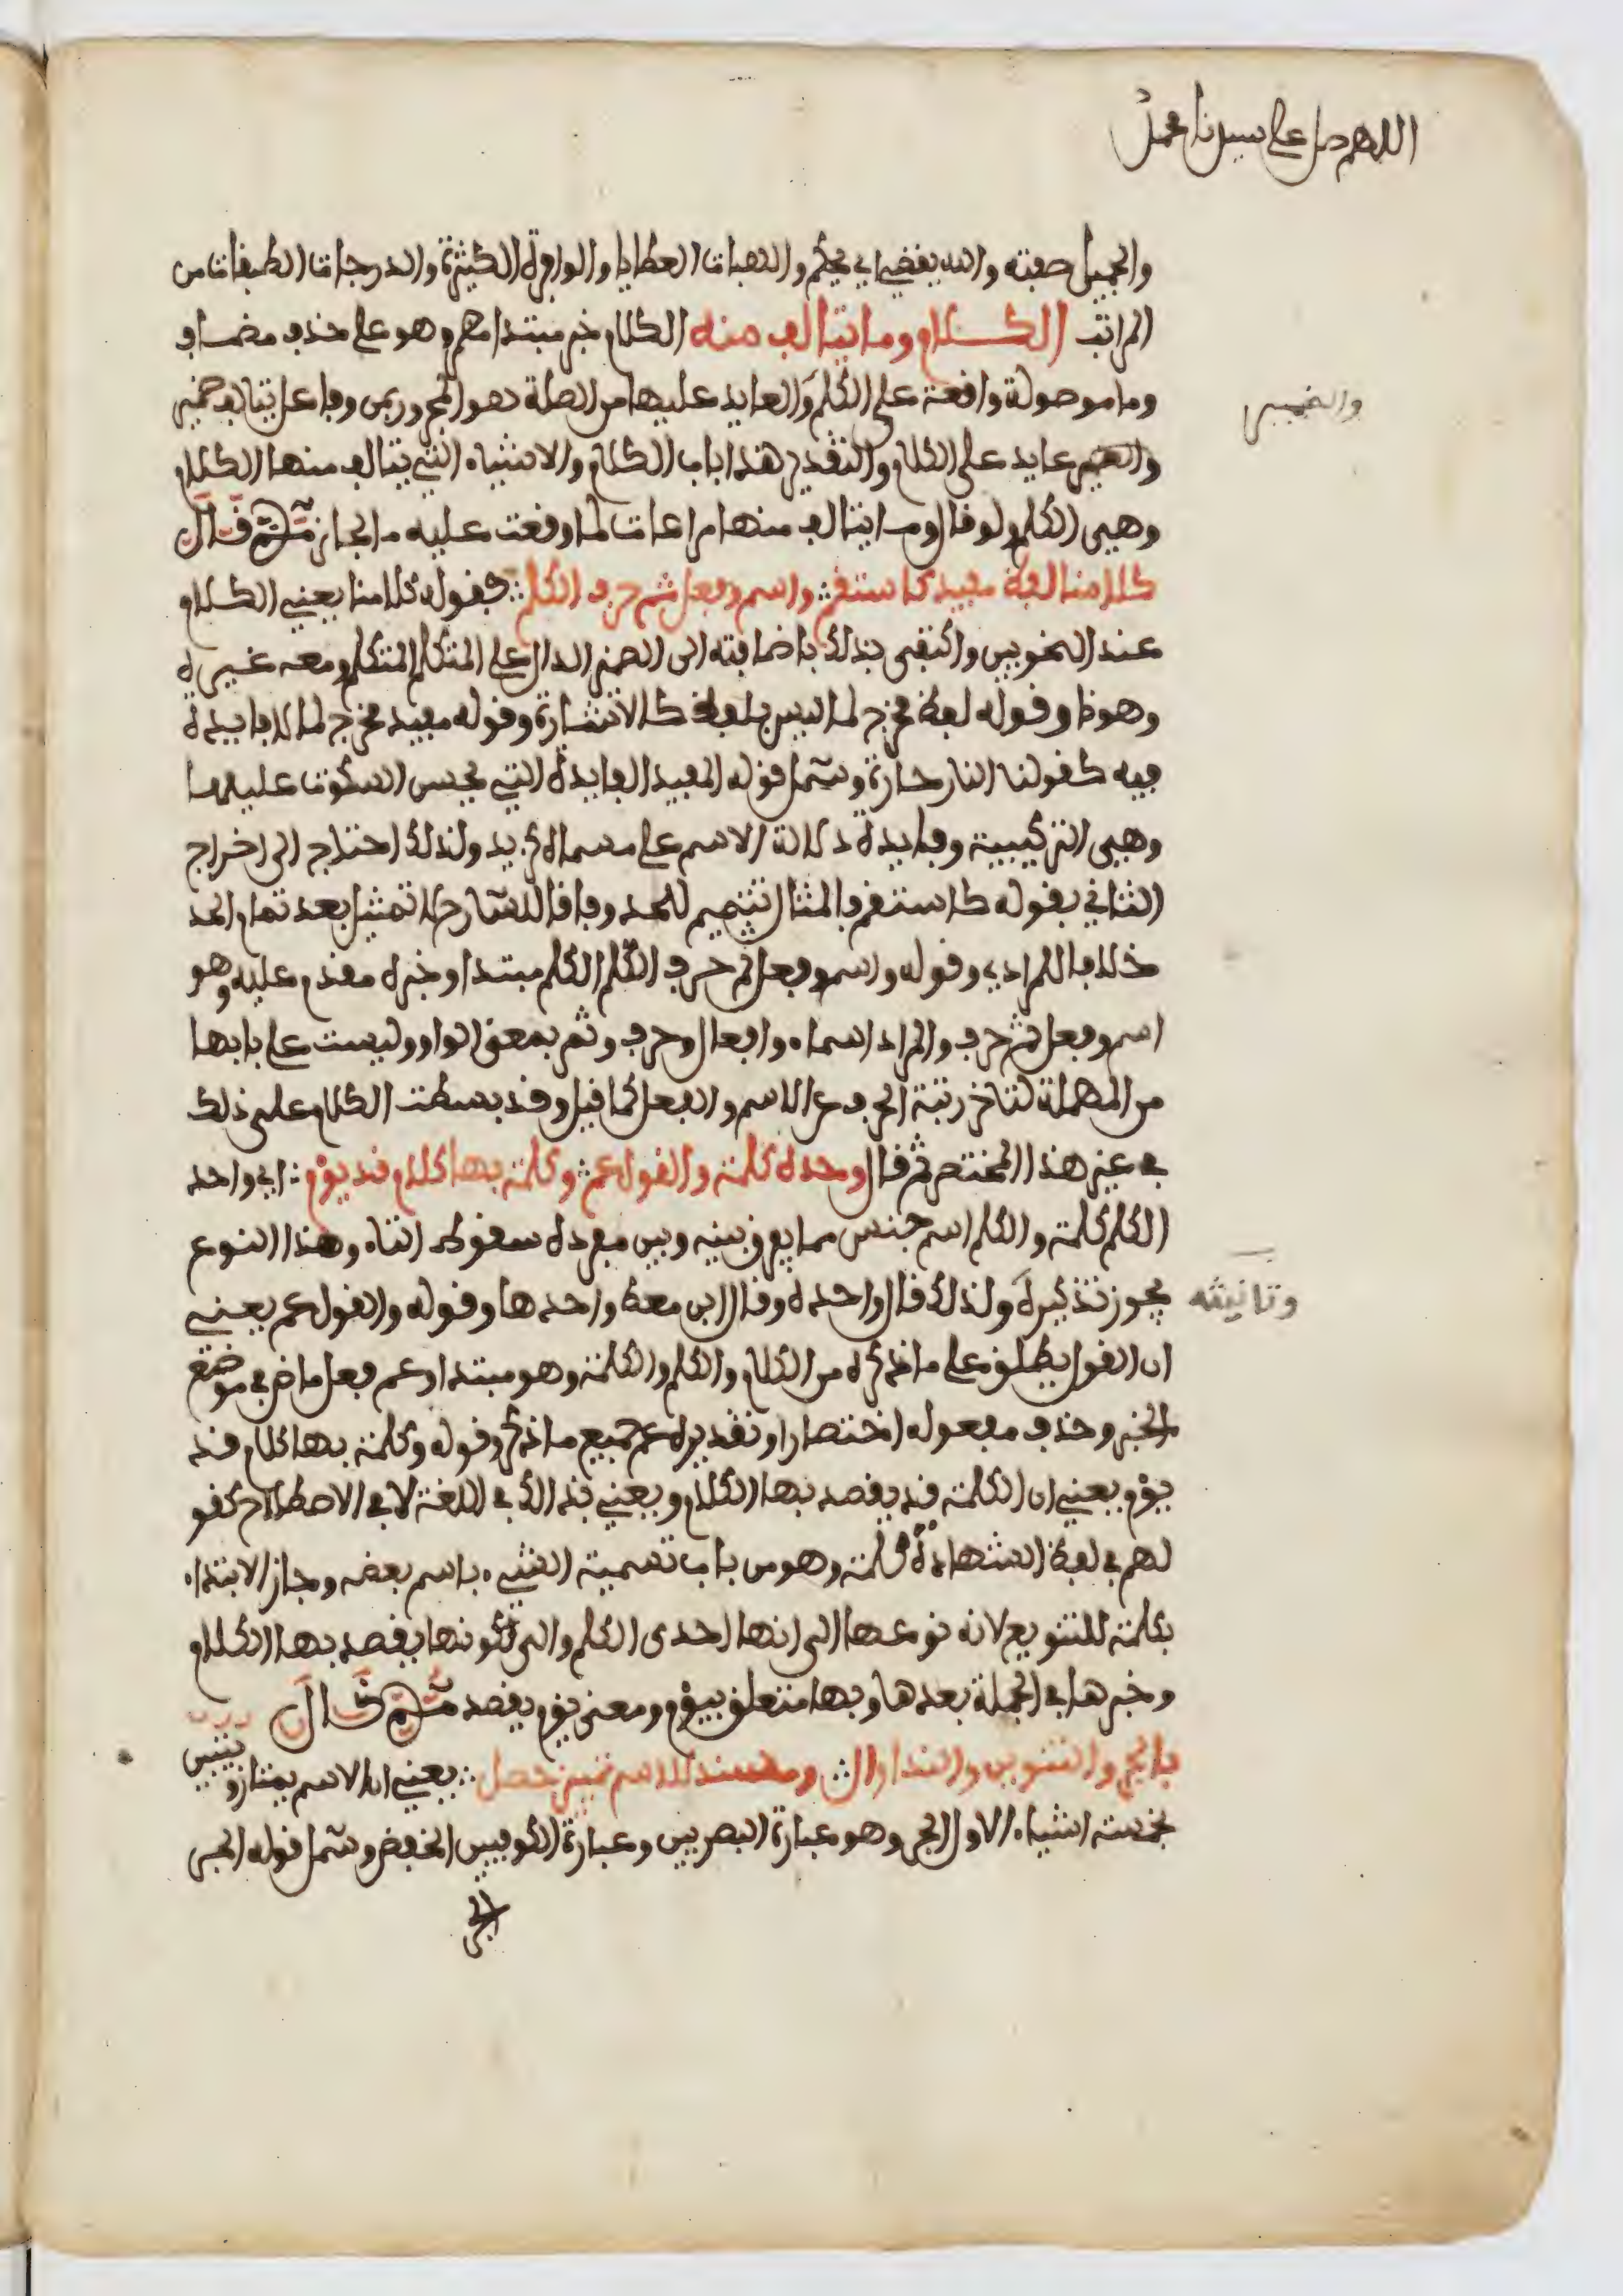 اللهم صل على سيدنا محمد
والجميل صفته والله يقضي اي يحكم والهبات العطايا والوافرة الكثيرة والدرجات الطبقات من
المراتب الكلام وما يتالف منه الكلام خبر مبتدا مضمر وهو على حذف مضاف
وما موصولة واقعة على الكلم والعايد عليها من الصلة هو المجرور بمن وفاعل يتالف ضمير
والضمير
والضمير عايد على الكلام والتقدير هذا باب الكلام والاشياء التي يتالف منها الكلام
وهي الكلم ولو قال وما يتالف منها مراعات لما وقعت عليه ما لجاز ثم قال
كلامنا لفظ مفيد كاستقم ∴ واسم وفعل ثم حرف الكلم ∴ فقوله كلامنا يعني الكلام
عند النحويين واكتفى بذلك باضافته الى الضمير الدال على المتكلم المتكلم ومعه غيره
وهونا وقوله لفظ مخرج لما ليس بلفظ كالاشارة وقوله مفيد مخرج لما لا فايدة
فيه كقولنا النار حارة وشمل قوله المفيد الفايدة التي يحسن السكوت عليها
وهي التركيبية وفايدة دلالة الاسم على مسماه كزيد ولذلك احتاج الى اخراج
الثاني بقوله كاستقم فالمثال تتميم للحد وفاقا للشارح لا تمثيل بعد تمام الحد
خلافا للمرادي وقوله واسم وفعل ثم حرف الكلم الكلم مبتدا وخبره مقدم عليه وهو
اسم وفعل ثم حرف والمراد اسماء وافعال وحرف وثم بمعنى الواو وليست على بابها
من المهملة لتاخر رتبة الحرف عن الاسم والفعل كما قيل وقد بسطت الكلام على ذلك
في غير هذا المختصر ثم قال وحده كلمة والقول عم ∴ وكلمة بها كلام قد يؤم ∴ اي واحد
الكلم كلمة والكلم اسم جنس مما يفرق بينه وبين مفرده سقوط التاء وهذا النوع
يجوز تذكيره ولذلك قال واحده وقال ابن معط واحدها وقوله والقول عم يعني
وتانيثه
ان القول يطلق على ما ذكره من الكلام والكلم والكلمة وهو مبتدا وعم فعل ماض في موضع
الخبر وحذف مفعوله اختصارا وتقديره عم جميع ما ذكر وقوله وكلمة بها كلام قد
يؤم يعني ان الكلمة قد يقصد بها الكلام ويعني بذالك في اللغة لا في الاصطلاح كقو
لهم في لفظ الشهادة كلمة وهو من باب تسمية الشيء باسم بعضه وجاز الابتداء
بكلمة للتنويع لانه نوعها الى انها احدى الكلم والى كونها يقصد بها الكلام
وخبرها في الجملة بعدها وبها متعلق بيؤم ومعنى يؤم يقصد ثم قال
بالجر والتنوين والندا وال ∴ ومسند للاسم تمييز حصل ∴ يعني ان الاسم يمتاز ويتبين
بخمسة اشياء الاول الجر وهو عبارة البصريين وعبارة الكوفيين الخفض وشمل قوله الجر
الجر